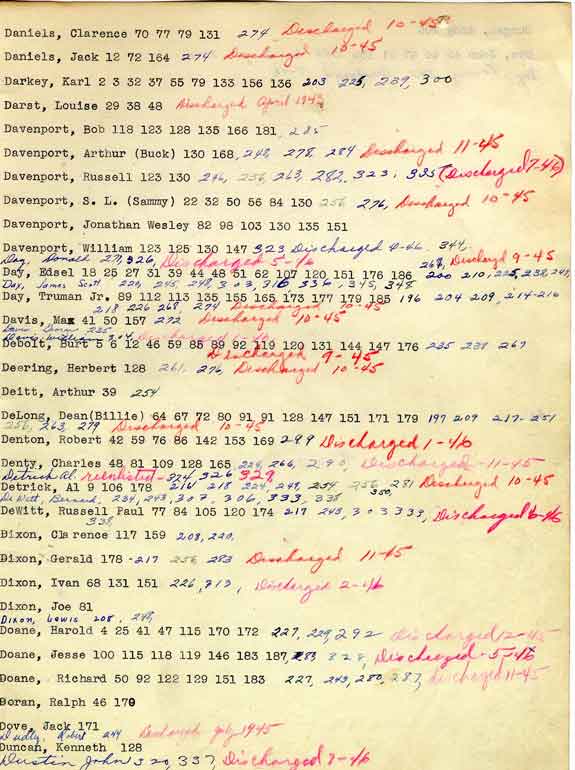 Daniels, Clarence 70 77 79 131 274 Discharged 10-45
Daniels, Jack 12 72 164 274 Discharged 10-45
Darkey, Karl 2 3 32 37 55 79 133 156 136 203 225, 239, 300
Darst, Louise 29 38 48 Discharged April 1945
Davenport, Bob 118 123 128 135 166 181, 285
Davenport, Arthur (Buck) 130 168, 248, 278, 284 Discharged 11-45
Davenport, Russell 123 130 246, 256, 263, 282, 323, 335 (Discharged 7-46)
Davenport, S. L. (Sammy) 22 32 50 56 84 130 256 276, Discharged 10-45
Davenport, Jonathan Wesley 82 98 103 130 135 151
Davenport, William 123 125 130 147 323 Discharged 4-46. 344,
Day, Donald 271, 326, Discharged 5-46
268, Discharged 9-45
Day, Edsel 18 25 27 31 39 44 48 51 62 107 120 151 176 186 200 210, 225, 238, 241,
Day, James Scott, 220, 245, 248, 303, 316 336, 345, 348
Day, Truman Jr. 89 112 113 135 155 165 173 177 179 185 196 204 209, 214-216
218 226 268, 274 Discharged 10-45
Davis, Max 41 50 157 272 Discharged 10-45
235
Debolt, Burt 5 6 12 46 59 85 89 92 119 120 131 144 147 176 235 238 267
Discharged 9-45
Deering, Herbert 128 261, 276, Discharged 10-45
Deitt, Arthur 39 254
DeLong, Dean(Billie) 64 67 72 80 91 91 128 147 151 171 179 197 209 217-251
256, 263, 279 Discharged 10-45
Denton, Robert 42 59 76 86 142 153 169 299 Discharged 1-46
Denty, Charles 48 81 109 128 165 224, 266, 290, Discharged-11-45
Detrick Al. reenlisted-324, 326 329
Detrick, Al 9 106 178 216 218 224, 248, 254 256 281 Discharged 10-45
DeWitt, Bernard, 234, 243, 307, 306, 333, 338 350,
DeWitt, Russell Paul 77 84 105 120 174 217 243, 303 333, Discharged 6-46
338,
Dixon, Clarence 117 159 208, 220,
Dixon, Gerald 178-217 256 283 Discharged 11-45
Dixon, Ivan 68 131 151 226, 313, Discharged 2-46
Dixon, Joe 81
Dixon, Lewis 208, 248,
Doane, Harold 4 25 41 47 115 170 172 227, 229, 292 Discharged 12-45
Doane, Jesse 100 115 118 119 146 183 187, 283 328, Discharged-5-46
Doane, Richard 50 92 122 129 151 183 227, 243, 280, 287, Discharged 11-45
Doran, Ralph 46 179
Dove, Jack 171
Dudly, Robert 244 Discharged July, 1945
Duncan, Kenneth 128
Dustin John 320, 337, Discharged 7-46